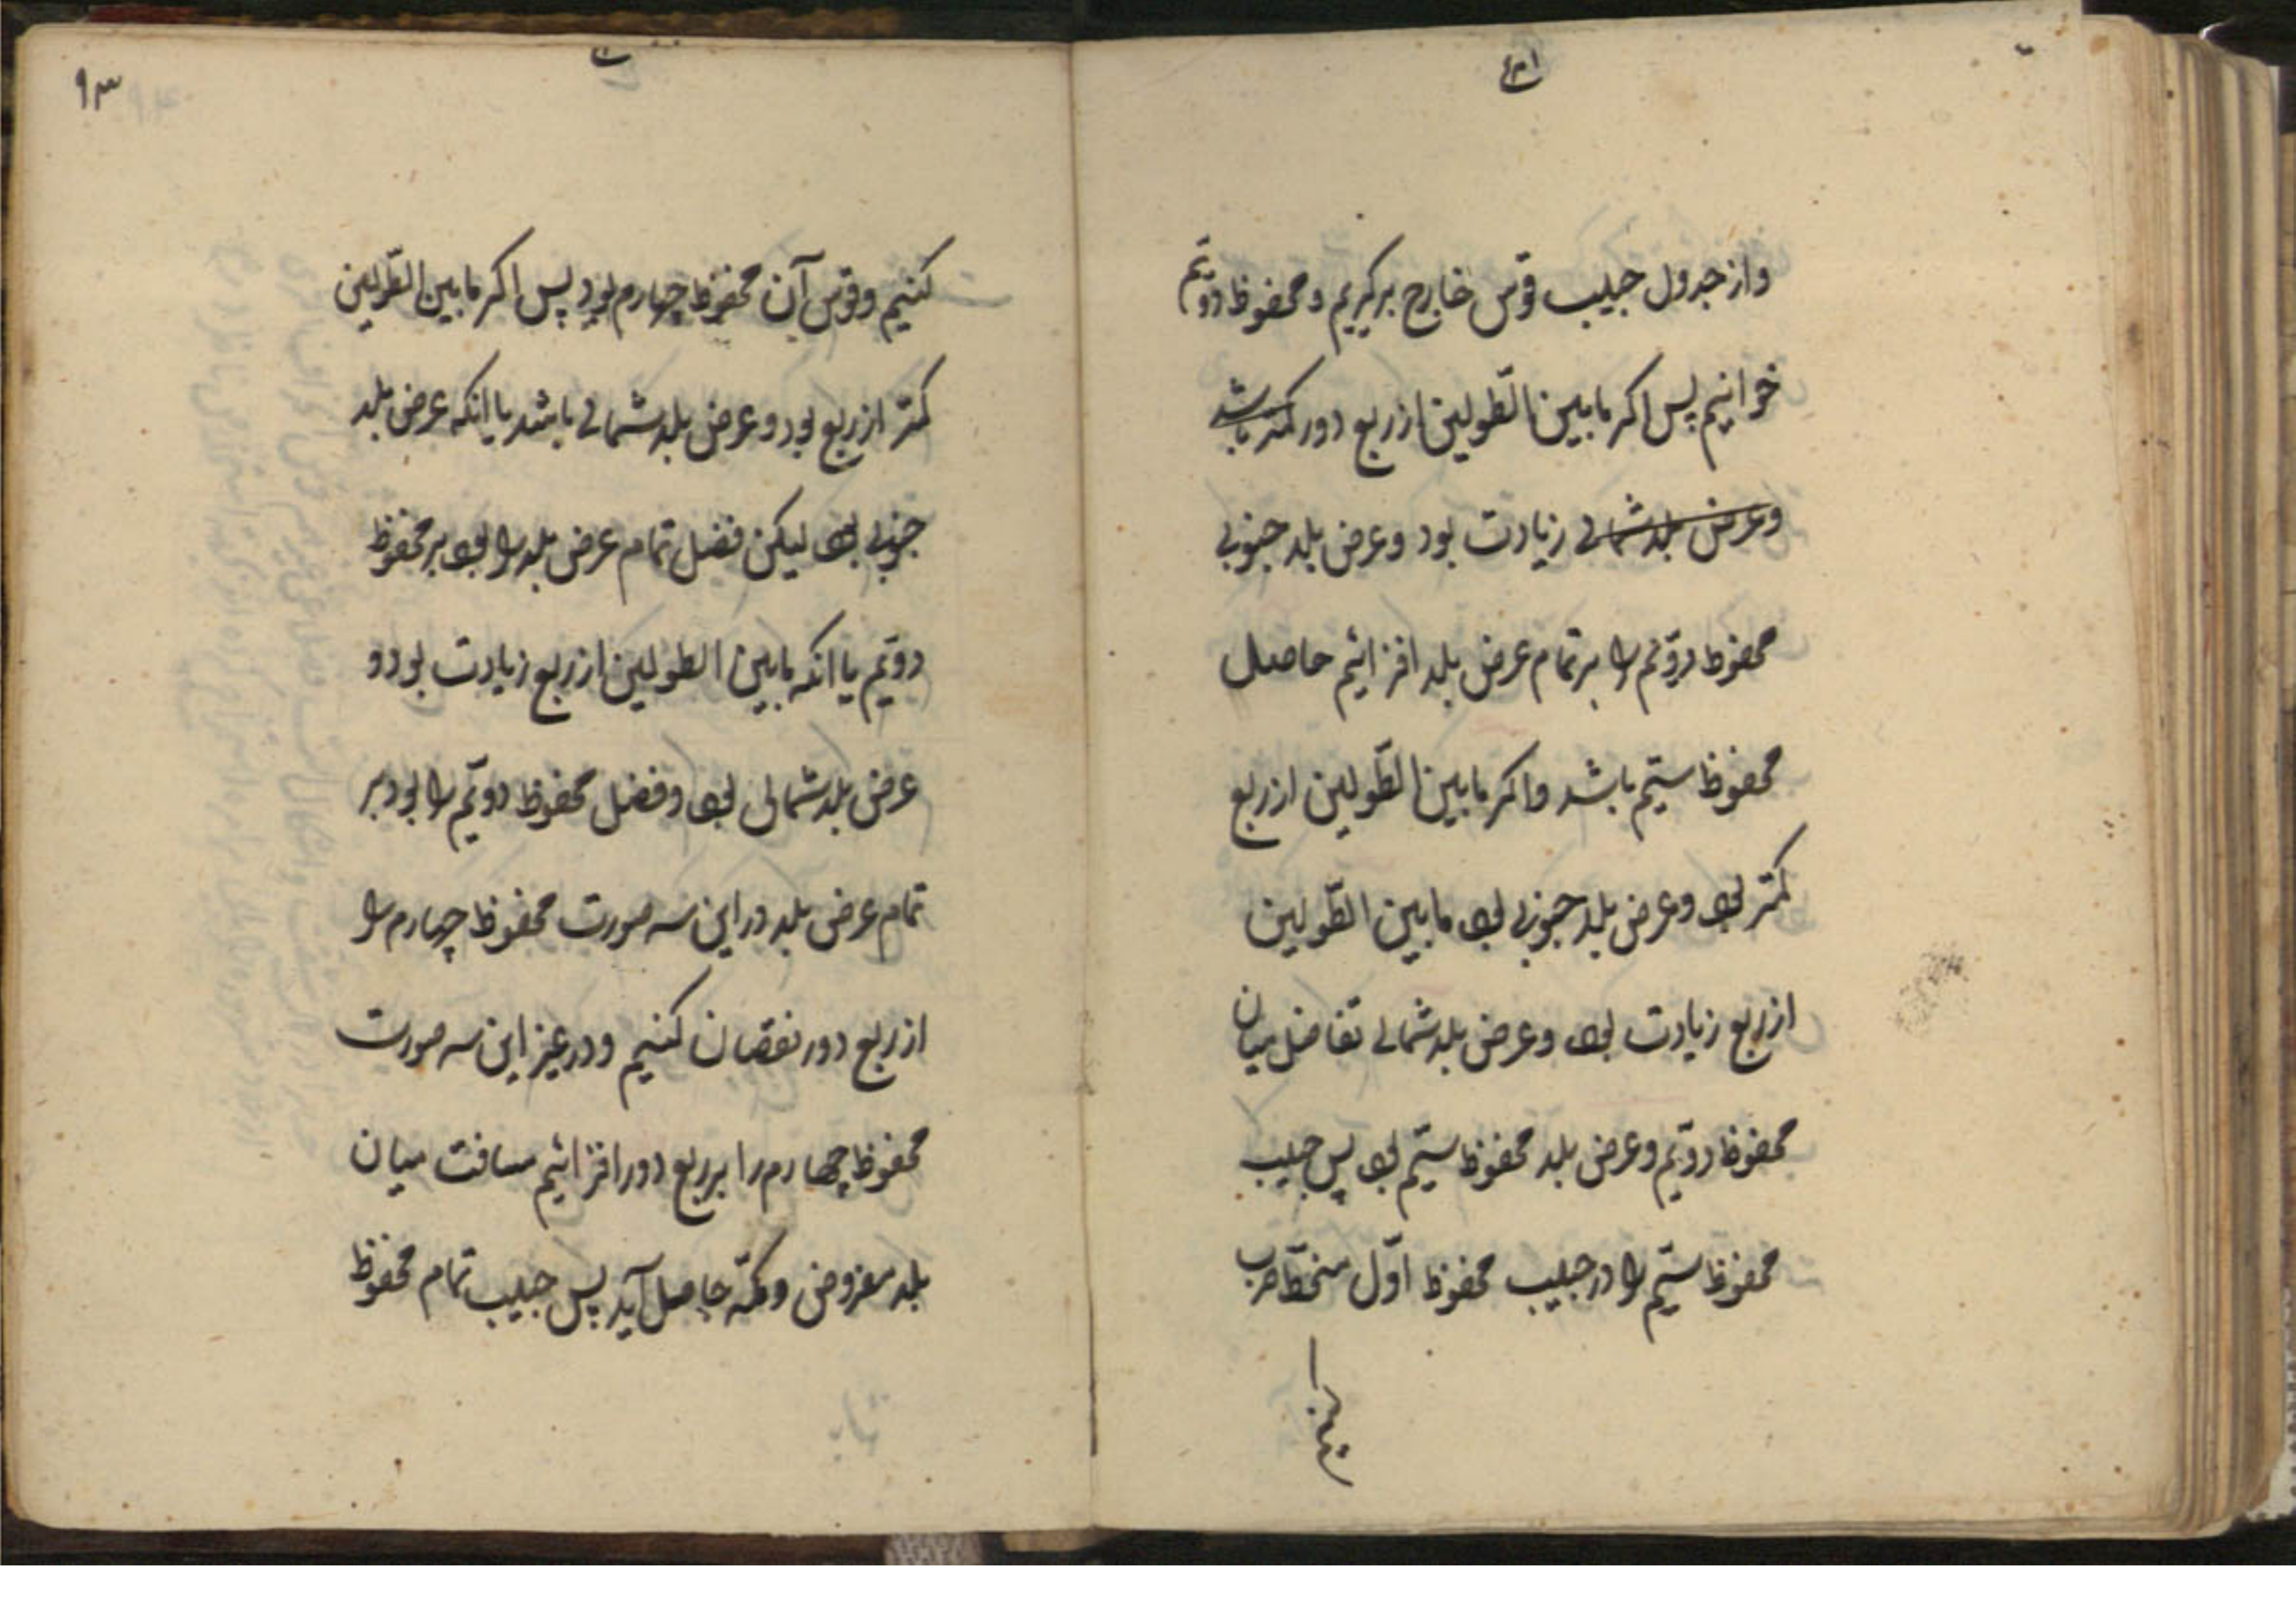 واز جدول جیب قوس خارج برگیریم و محفوظ دویّم
خوانیم پس اکر مابین الطّولین از ربع دور کمتر باشد
وعرض بلد شمالی زیادت بود وعرض بلد جنوبی
محفوظ دویّم را بر تمام عرض بلد افزائیم حاصل
محفوظ سیّم باشد واکر مابین الطّولین از ربع
کمتر بود وعرض بلد جنوبی بود مابین الطّولین
از ربع زیادت بود وعرض بلد شمالی تفاضل میان
محفوظ دویّم وعرض بلد محفوظ سیّم بود پس جیب
محفوظ سیّم را در جیب محفوظ اوّل منحطّ ضرب
۹۳
کنیم وقوس آن محفوظ چهارم بود پس اکر مابین الطّولین
کمتر از ربع بود وعرض بلد شمالی باشد یا انکه عرض بلد
جنوبی بود لیکن فضل تمام عرض بلد را بود بر محفوظ
دویّم یا انکه مابین الطولین از ربع زیادت بود و
عرض بلد شمالی بود وفضل محفوظ دویّم را بود بر
تمام عرض بلد در این سه صورت محفوظ چهارم را
از ربع دور نقصان کنیم ودر غیر این سه صورت
محفوظ چهارم را بر ربع دور افزائیم مسافت میان
بلد مفروض ومکّه حاصل آید پس جیب تمام محفوظ